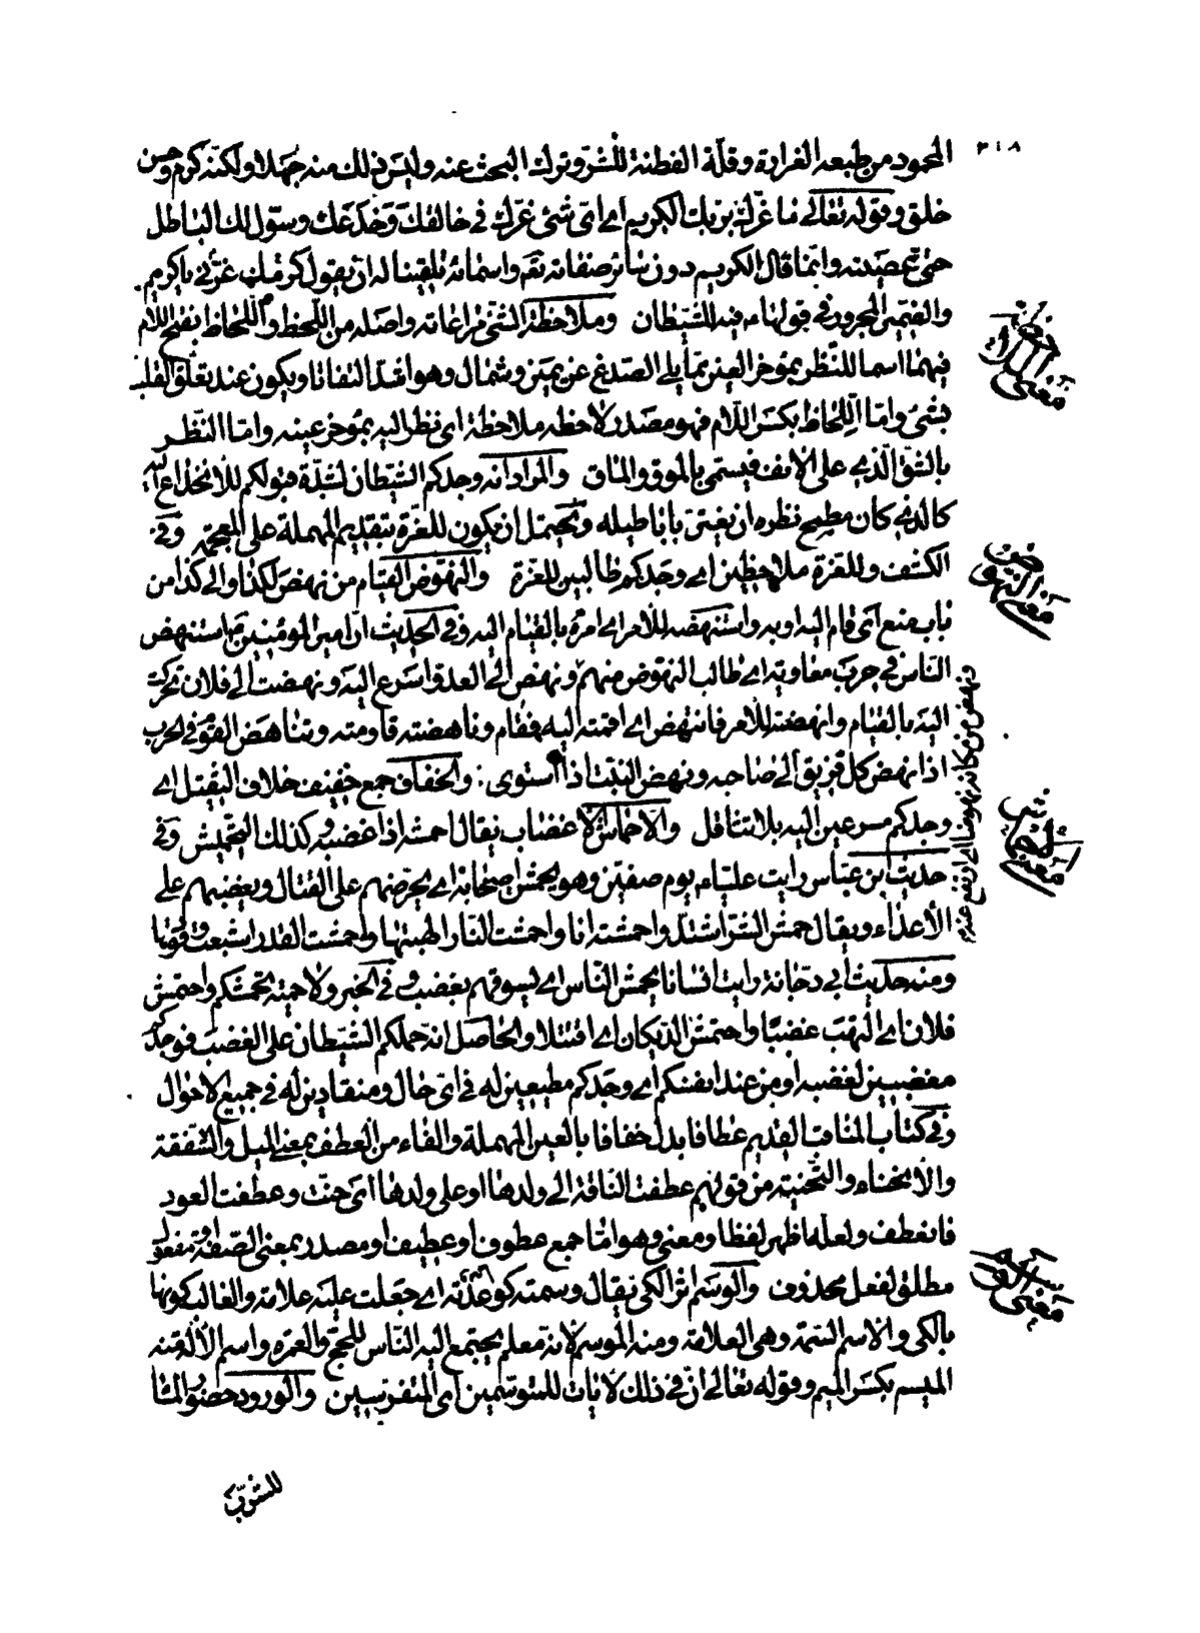 ٣١٨
المحمود من طبعه الغرارة وقلّة الفطنة للشرّ وترك البحث عنه وليس ذلك منه جهلا ولكنّه كرم وحسن
خلق وقوله تعالى ما غرّك بربّك الكريم اى اىّ شئ غرّك فى خالفك وخدعك وسوّل لك الباطل
حتى عصيته وانّما قال الكريم دون سائر صفاته تقم واسمائه تلقينا له ان يقول كرمك غرّنى يا كريم
والضمير المجرور فى قولها ء فيه للشيطان وملاحظة الشئ مراعاته واصله من اللّحظ واللّحاظ بفتح اللام
فيهما اسما للنّظر بمؤخر العين ممّا يلى الصدغ عن يمين وشمال وهو اشدّ التفاتا ويكون عند تعلّق القلب
بشئ وامّا اللِّحاظ بكسر اللّام فهو مصدر لاحظه ملاحظة اى نظر اليه بمؤخر عينه وامّا النّظر
بالشقّ الّذى على الانف فيسمّى بالموق والماق والمراد انه وجدكم الشيطان لشدّة قبولكم للانخداع
كالّذى كان مطمح نظره ان يغترّ باباطيله ويحتمل ان يكون للغرّة بتقديم المهملة على المعجمة وفى
الكشف وللغرّة ملاحظين اى وجدكم طالبين للغرّة والنهوض القيام من نهض لكذا والى كذا من
باب منع اى قام اليه اوبه واستنهضه للامر اى امره بالقيام اليه وفى الحديث انّ امير المؤمنين ع استنهض
الناس فى حرب معاوية اى طالب النهوض منهم ونهض الى العدوّ اسرع اليه ونهضت الى فلان تحركت
اليه بالقيام وانهضته للامر فانتهض اى اقمته اليه فقام وناهضته قاومته وتناهض القوم فى الحرب
اذا نهض كل فريق الى صاحبه ونهض النبت اذا استوى : والخفاف جمع خفيف خلاف الثقيل اى
وجدكم مسرعين اليه بلا تثاقل والاحماش الاغضاب يقال احمشه اذا اغضبه وكذلك التحميش وفى
حديث ابن عباس رايت عليّا ء يوم صفين وهو يحمش اصحابه اى يحرّضهم على القتال ويغضبهم على
الأعداء ويقال حمش الشرّ اشتدّ واحمشته انا واحمشت النار الهبتها واحمشت القدر اشبعت وقودها
ومنه حديث ابى دجانة رايت انسانا يحمش الناس اى يسوقهم بغضب وفى الخبر ولا حمية تحمشكم واحتمش
فلان اى التهب غضبًا واحتمش الديكان اى اقتتلا والحاصل انه حملكم الشيطان على الغضب فوجدكم
مغضبين لغضبه او من عند انفسكم اى وجدكم مطيعين له فى اىّ حال ومنقادين له فى جميع الاحوال
وفى كتاب المناقب القديم عطافا بدل خفافا بالعين المهملة والفاء من العطف بمعنى الميل والشفقة
والانحناء والتحنية من قولهم عطفت الناقة الى ولدها او على ولدها اى حنت وعطفت العود
فانعطف ولعله اظهر لفظا ومعنى وهو امّا جمع عطوف او عطيف او مصدر بمعنى الصفة او مفعول
مطلق لفعل محذوف والوسم اثر الكى يقال وسمته كوعدته اى جعلت عليه علامة والغالب كونها
بالكى والاسم السمة وهى العلامة ومنه الموسم لانه معلم يجتمع اليه النّاس للحجّ والعمره واسم الآلة منه
الميسم بكسر الميم وقوله تعالى انّ فى ذلك لايات للمتوسّمين اى المتفرسين والورود حضور الماء
للشرب
معنى الملاحظة
معنى النهوض
ونهض من مكانه نهوضا اى ارتفع عنه
معنى الاحماش
معنى الوسم